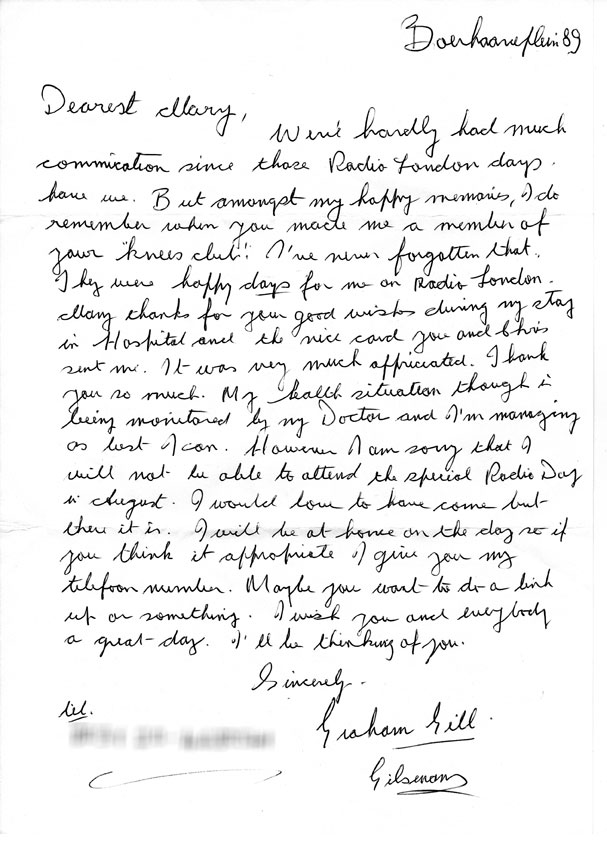 Boerhaaveplein 89
Dearest Mary,
We've hardly had much
commication since those Radio London days.
have we. But amongst my happy memories, I do
remember when you made me a member of
your "knees club"! I've never forgotten that.
They were happy days for me on Radio London.
Many thanks for your good wishes during my stay
in Hospital and the nice card you and Chris
sent me. It was very much appriciated. Thank
you so much. My health situation though is
being monitored by my Doctor and I'm managing
as best I can. However I am sorry that I
will not be able to attend the special Radio Day
in August. I would love to have come but
there it is. I will be at home on the day so if
you think it appropriate I give you my
telefoon number. Maybe you want to do a link
up or something. I wish you and everybody
a great day. I'll be thinking of you.
Sincerely.
tel.
Graham Gill.
Gilsenan